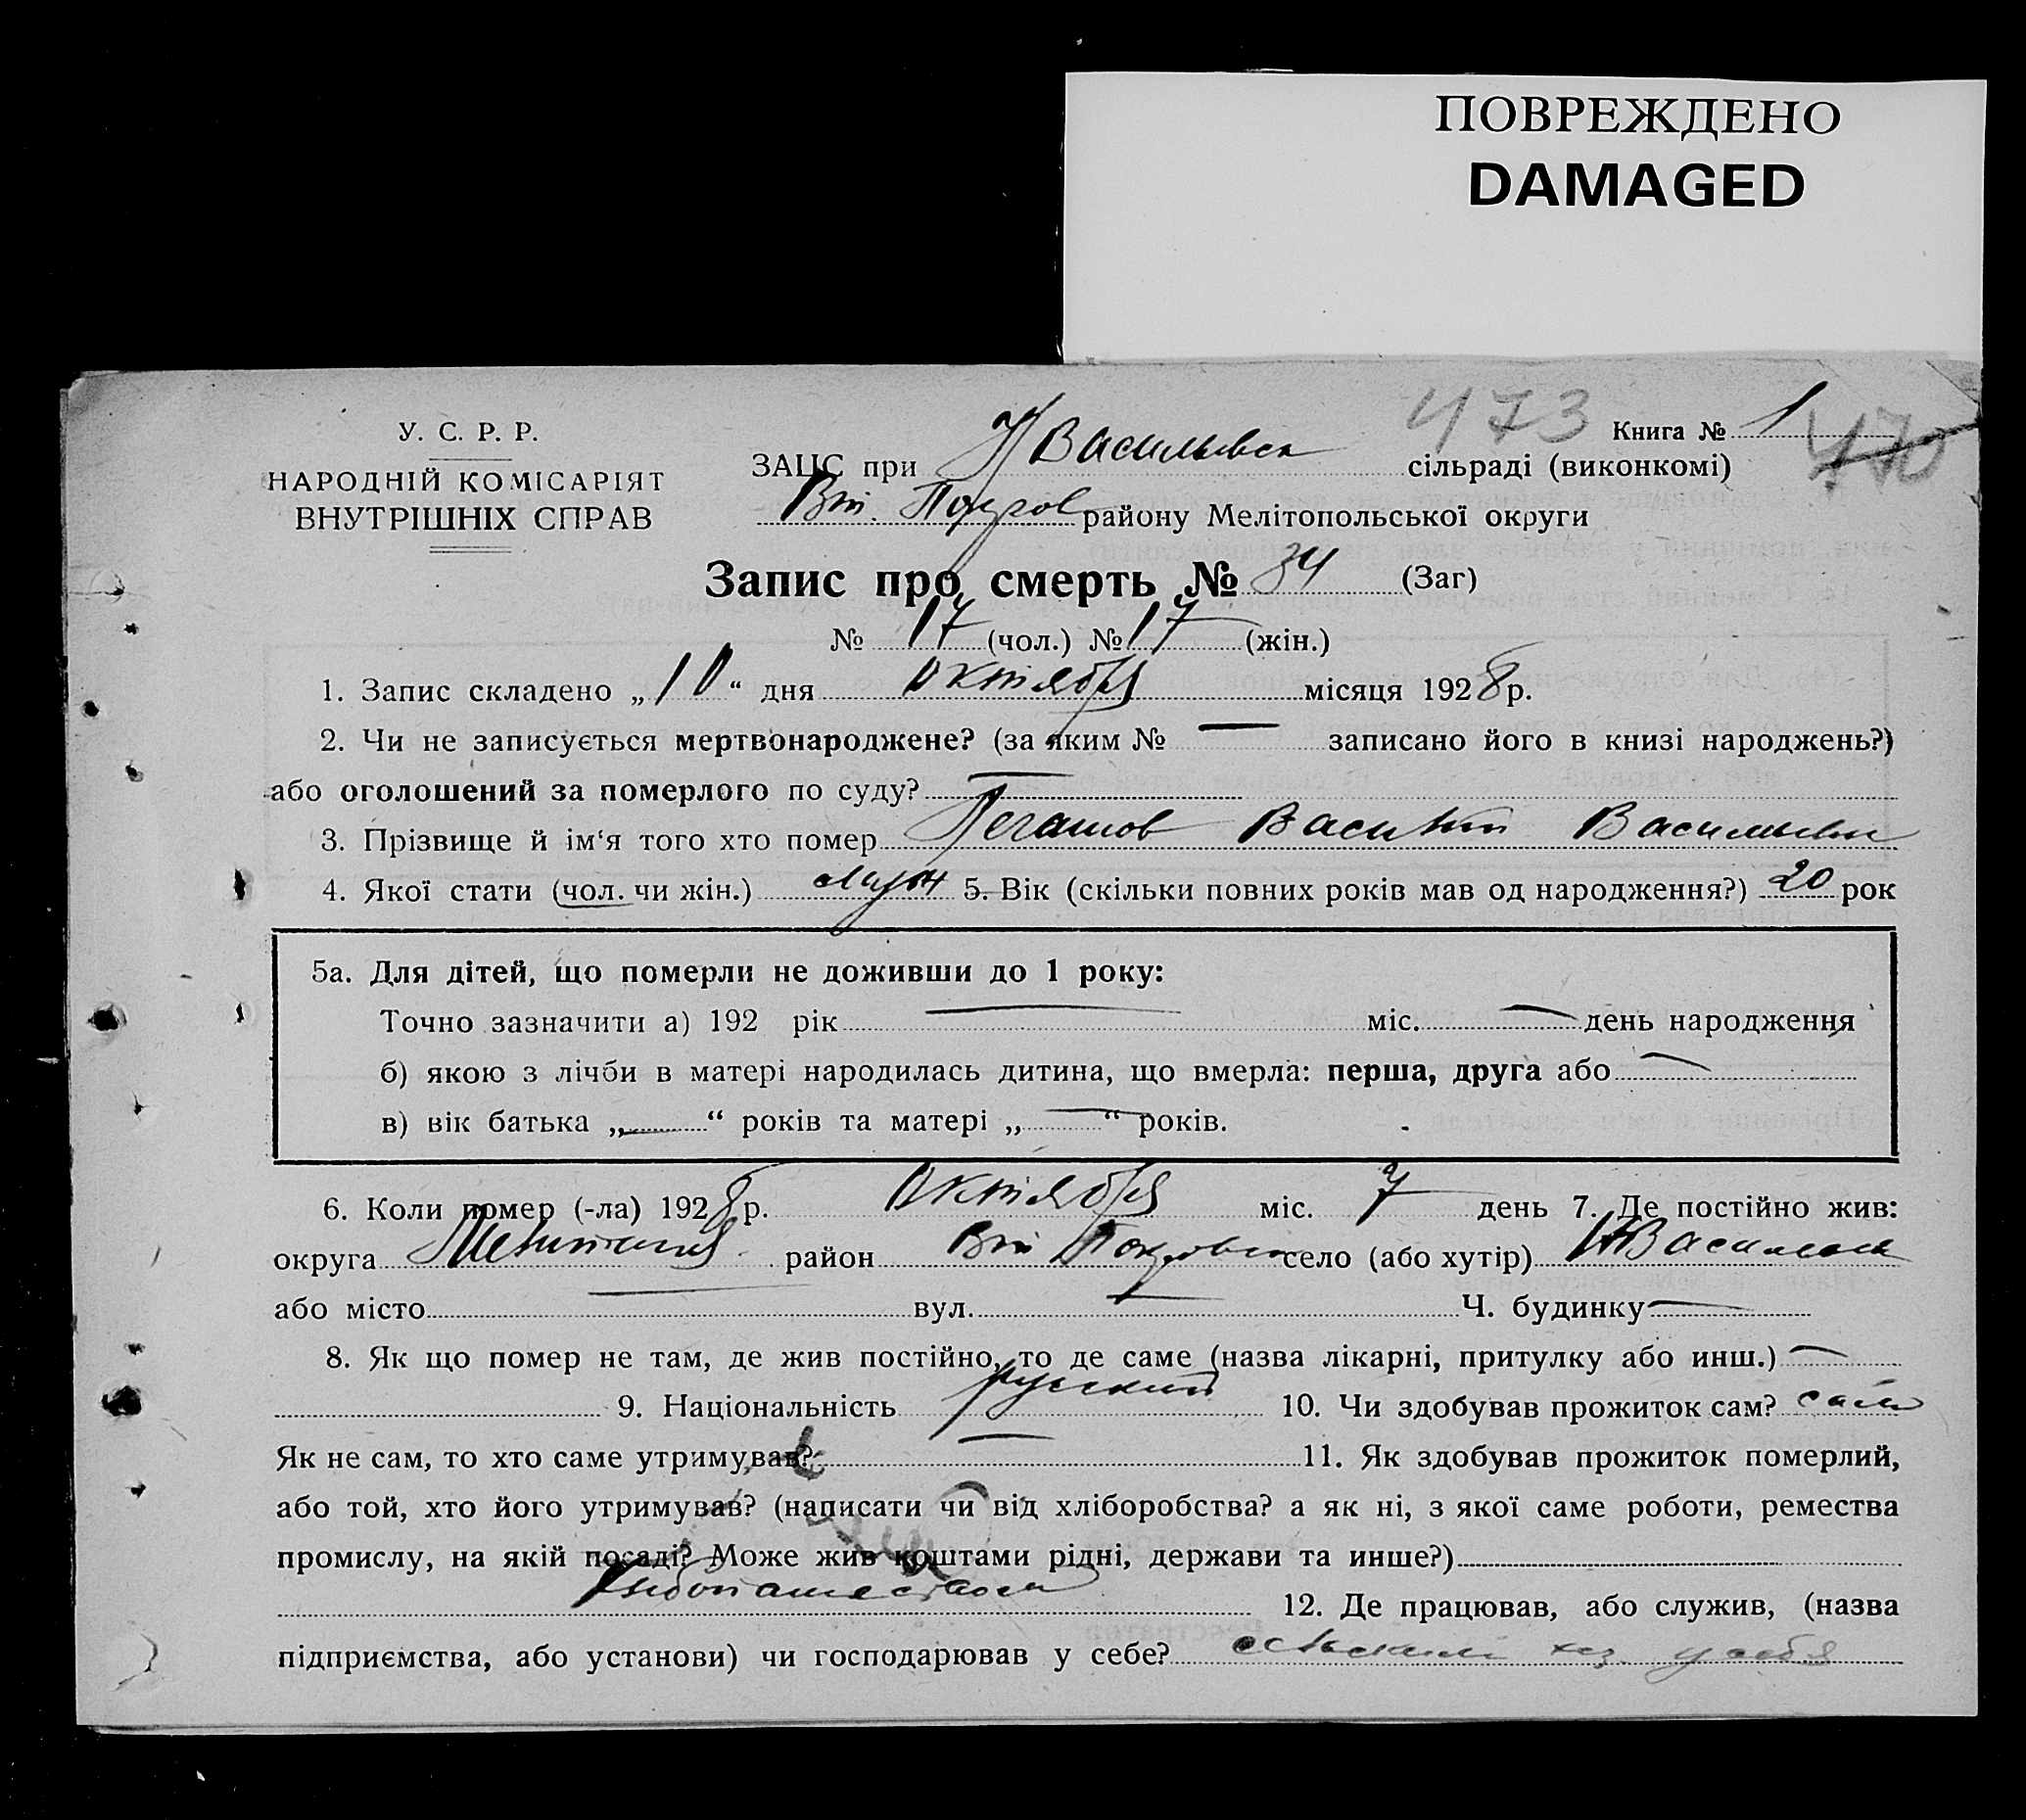 ПОВРЕЖДЕНО
DAMAGED
473
Книга № 1
470
У. С. Р. Р.
НАРОДНІЙ КОМІСАРІЯТ
ВНУТРІШНІХ СПРАВ
ЗАЦС при Н Васильевск сільраді (виконкомі)
Вт. Покров району Мелітопольської округи
Запис про смерть № 34 (Заг)
№ 17 (чол.) № 17 (жін.)
1. Запис складено „10“ дня Октября місяця 1928 р.
2. Чи не записується мертвонароджене? (за яким № — записано його в книзі народжень?)
або оголошений за померлого по суду? —
3. Прізвище й ім‘я того хто помер Василий Васильевич
4. Якої стати (чол. чи жін.) муж 5. Вік (скільки повних років мав од народження?) 20 рок
5а. Для дітей, що померли не доживши до 1 року:
Точно зазначити а) 192 рік — міс. — день народження
б) якою з лічби в матері народилась дитина, що вмерла: перша, друга або —
в) вік батька „—“ років та матері „—“ років.
6. Коли помер (-ла) 1928 р. Октября міс. 7 день 7. Де постійно жив:
округа район Вт Покровск село (або хутір) Н Васильевк
або місто — вул. — Ч. будинку —
8. Як що помер не там, де жив постійно, то де саме (назва лікарні, притулку або инш.) —
9. Національність русский 10. Чи здобував прожиток сам? сам
Як не сам, то хто саме утримував? — 11. Як здобував прожиток померлий,
або той, хто його утримував? (написати чи від хліборобства? а як ні, з якої саме роботи, ремества
промислу, на якій посаді? Може жив коштами рідні, держави та инше?)
хлебопашеством 12. Де працював, або служив, (назва
підприємства, або установи) чи господарював у себе? сельским хоз. у себя